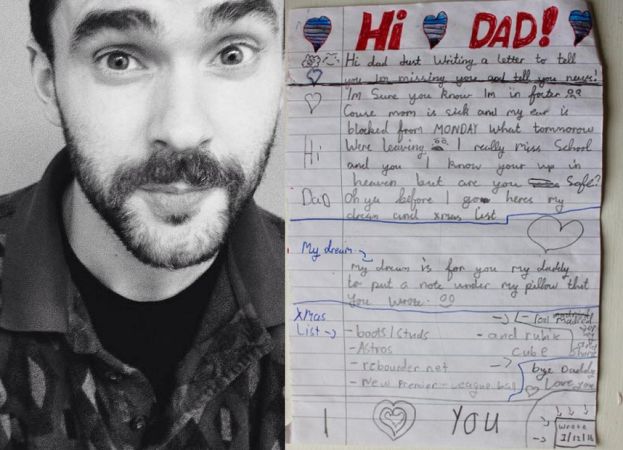 Hi DAD!
Hi dad Just Writing a letter to tell
you Im missing you and tell you news.
Im Sure you know Im in foster
Couse mom is sick and my ear is
blocked from MONDAY What tommorow
Hi
Were leaving I really miss School
and you I know your up in
heaven but are you Safe?
Dad
Oh ya before I go heres my
dream and xmas list
My dream
My dream is for you my daddy
to put a note under my pillow that
you wrote.
XMas
List
- boots/studs
- Astros
- rebounder net
- New Premier-League ball
- and rubix
cube
bye Daddy
Love you
I YOU
Wrote
1/12/16